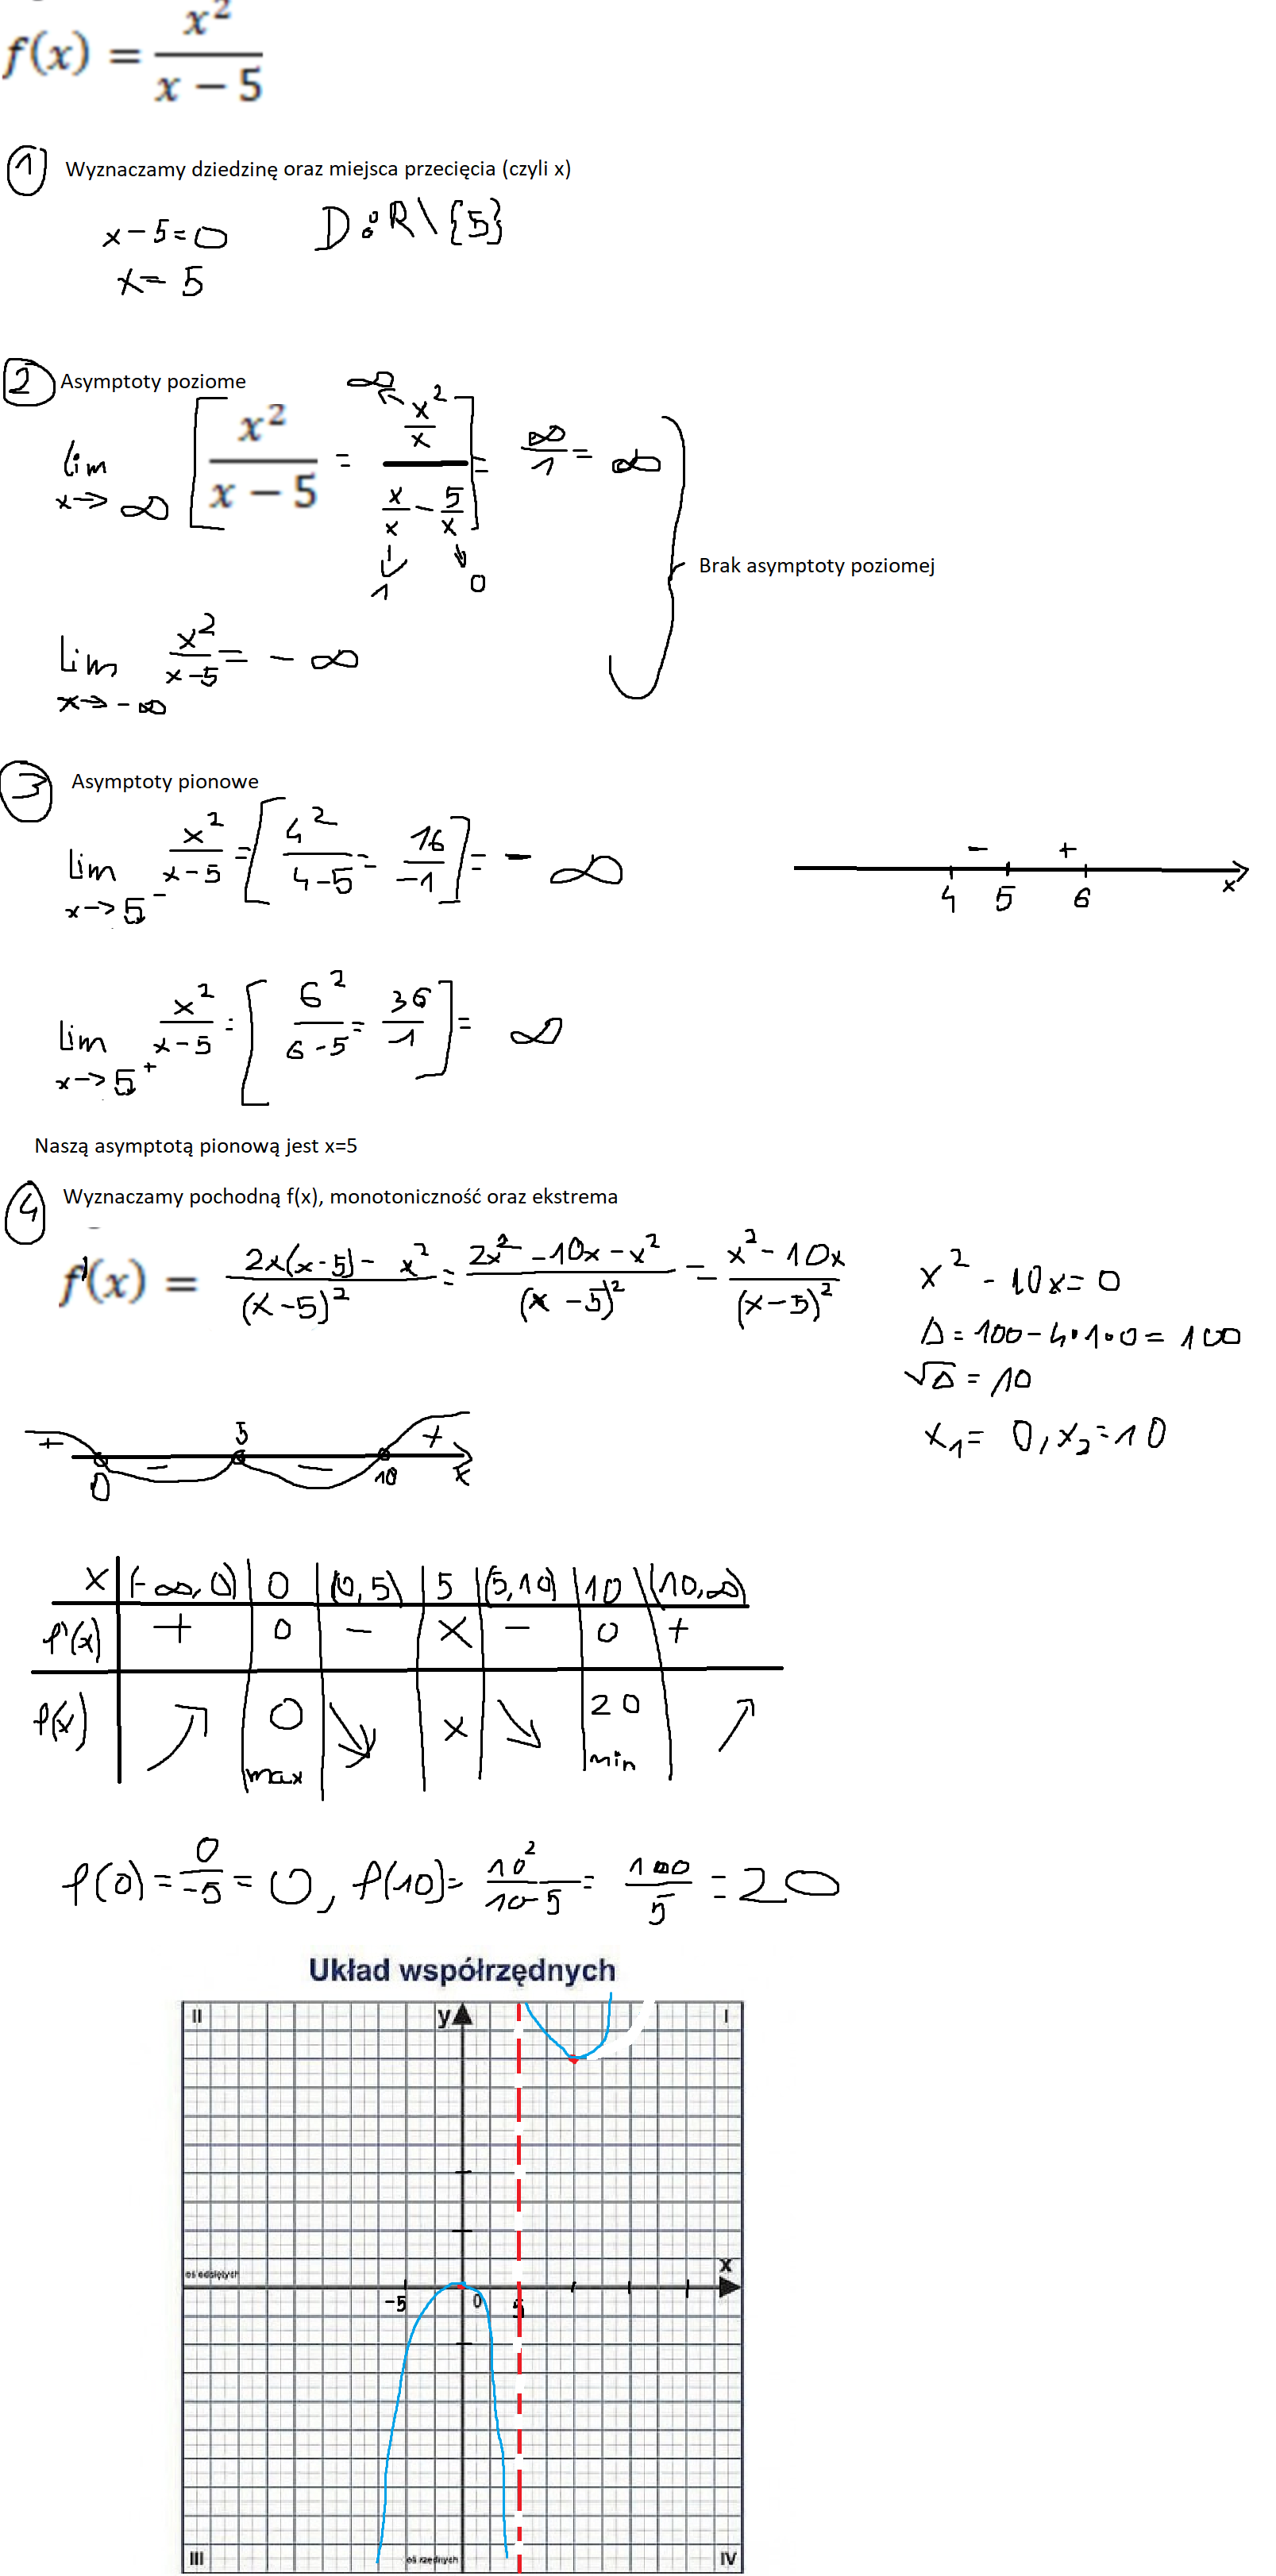 f(x) = x² / (x − 5)
1 Wyznaczamy dziedzinę oraz miejsca przecięcia (czyli x)
x − 5 = 0 D: R \ {5}
x = 5
2 Asymptoty poziome
lim x→∞ [ x² / (x − 5) = (x²/x) / (x/x − 5/x) ] = ∞/1 = ∞
∞
1 0
Brak asymptoty poziomej
lim x→−∞ x² / (x−5) = − ∞
3 Asymptoty pionowe
lim x→5⁻ x² / (x−5) = [ 4² / (4−5) = 16 / −1 ] = − ∞
− +
4 5 6 x
lim x→5⁺ x² / (x−5) = [ 6² / (6−5) = 36 / 1 ] = ∞
Naszą asymptotą pionową jest x=5
4 Wyznaczamy pochodną f(x), monotoniczność oraz ekstrema
f'(x) = (2x(x−5) − x²) / (x−5)² = (2x² − 10x − x²) / (x−5)² = (x² − 10x) / (x−5)²
x² − 10x = 0
Δ = 100 − 4·1·0 = 100
√Δ = 10
x₁ = 0, x₂ = 10
+ 0 − 5 − 10 + x
x (−∞, 0) 0 (0, 5) 5 (5, 10) 10 (10, ∞)
f'(x) + 0 − x − 0 +
f(x) ↗ 0 max ↘ x ↘ 20 min ↗
f(0) = 0 / −5 = 0, f(10) = 10² / (10−5) = 100 / 5 = 20
Układ współrzędnych
II y I
x
oś odciętych
−5 0 5
III oś rzędnych IV